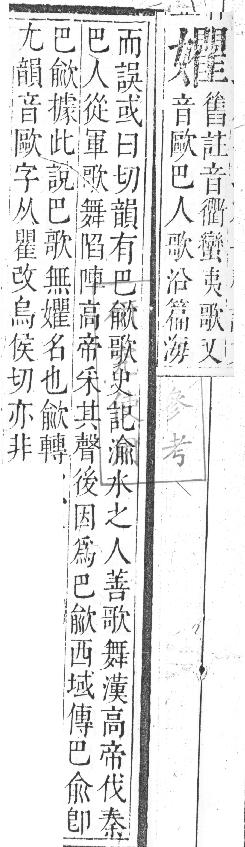 孆
舊註音衢蠻夷歌又
音歐巴人歌沿篇海
而誤或曰切韻有巴歈歌史記渝水之人善歌舞漢高帝伐秦
巴人從軍歌舞陷陣高帝采其聲後因爲巴歈西域傳巴俞卽
巴歈據此說巴歌無㜹名也歈轉
尤韻音歐字从瞿改烏侯切亦非
參考